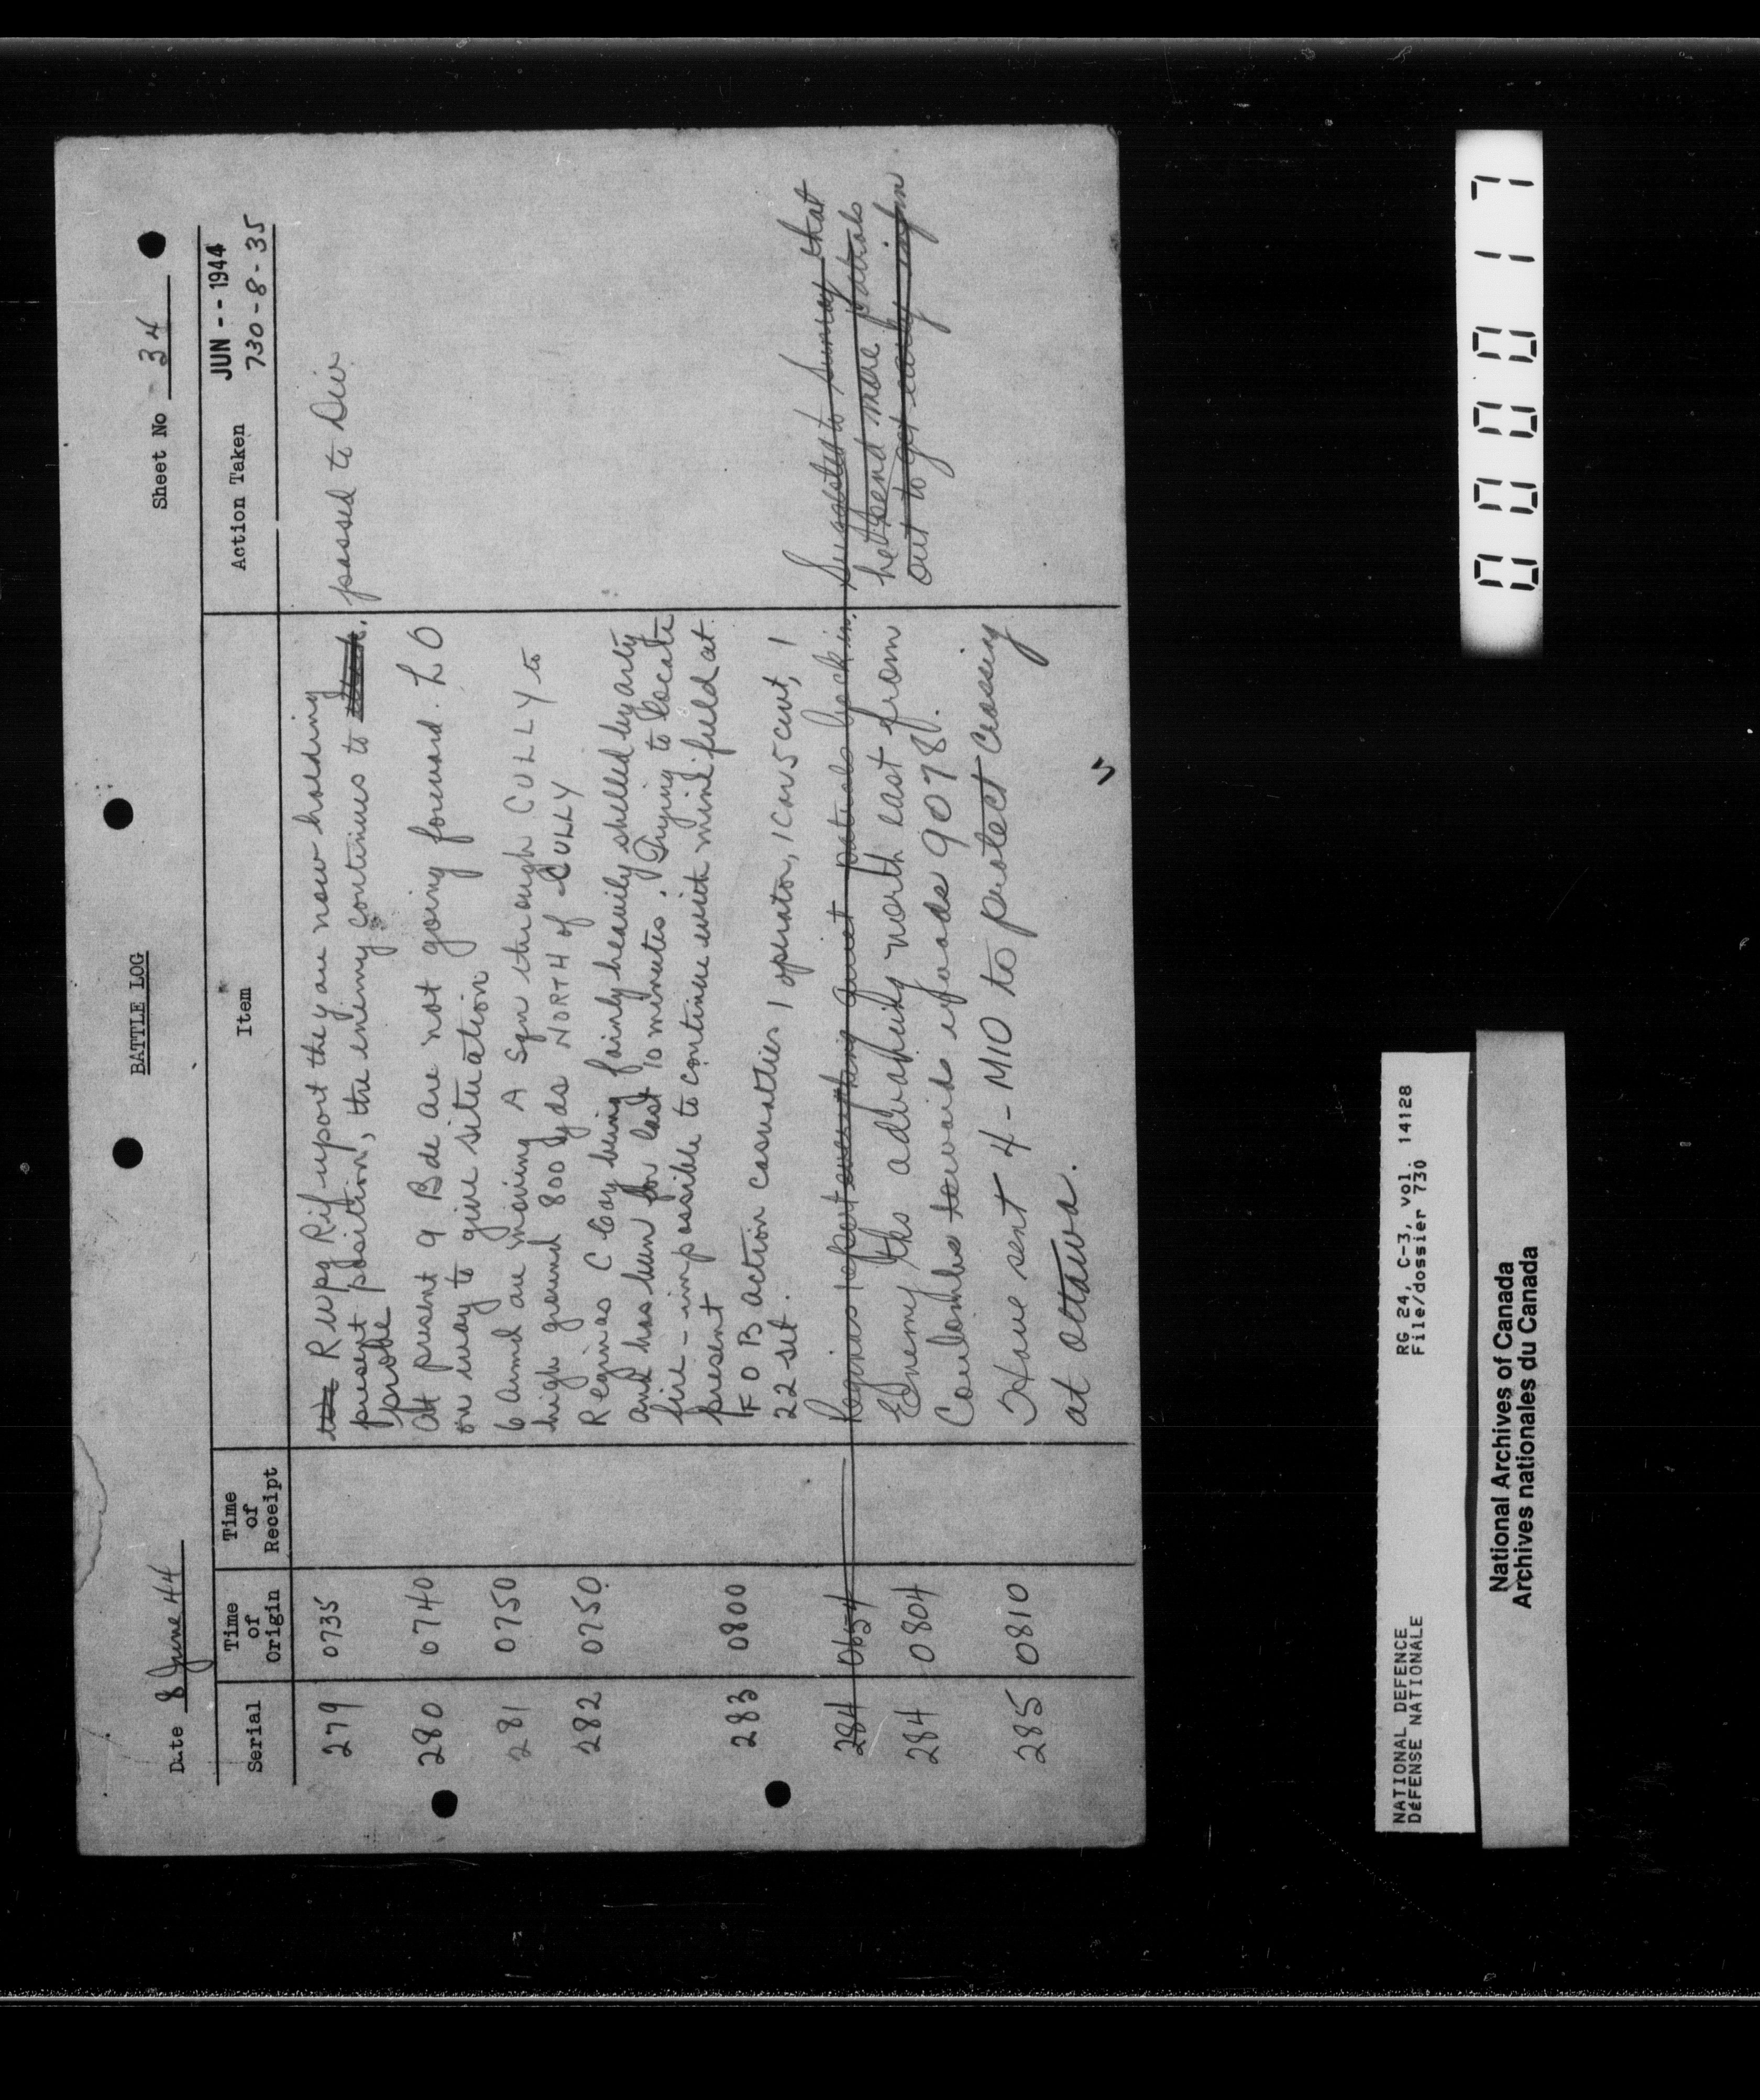 BATTLE LOG
Date 8 June 44
Sheet No 34
Serial
Time of Origin
Time of Receipt
Item
Action Taken
JUN -- 1944
730-8-35
279 0735 R Wpg Rif report they are now holding
present position, the enemy continues to
probe
passed to Div
280 0740 At present 9 Bde are not going forward. L O
on way to give situation
281 0750 6 Armd are moving A Sqn through CULLY to
high ground 800 yds NORTH of CULLY
282 0750 Reginas C Coy being fairly heavily shelled by arty
and has been for last 10 minutes. Trying to locate
fire - impossible to continue with mine field at
present
283 0800 F O B action casualties 1 operator, 1 Cov 5 cwt, 1
22 set.
284 0654 Reginas report everything quiet patrols back in.
Suggested to Sunray that
he send more patrols
out to get early infm
284 0804 Enemy tks advancing north east from
Coulombs towards x roads 9078.
285 0810 Have sent 4 - M10 to protect crossing
at Ottawa.
5
NATIONAL DEFENCE
DÉFENSE NATIONALE
RG 24, C-3, vol. 14128
File/dossier 730
National Archives of Canada
Archives nationales du Canada
0000017